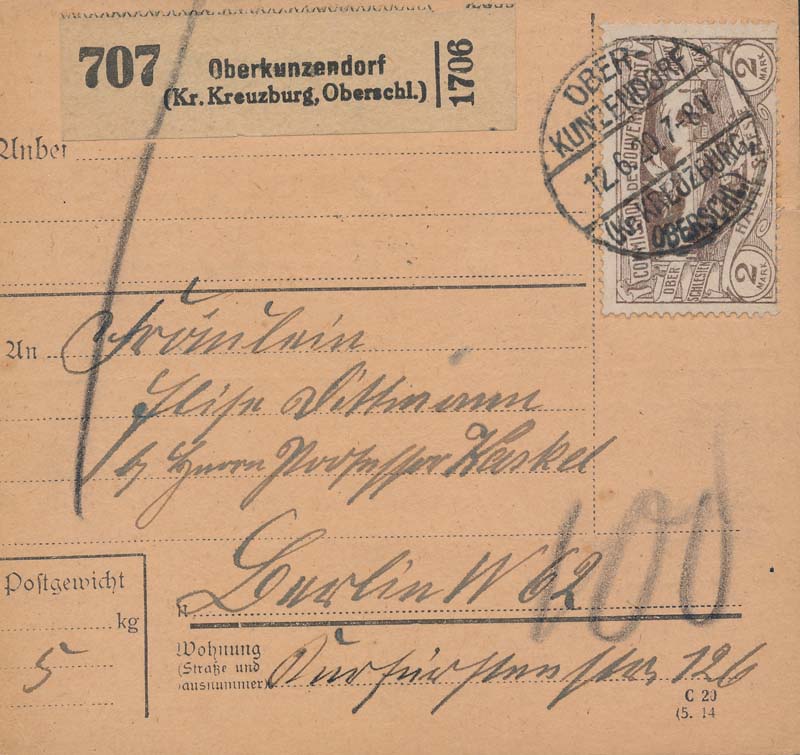 707 Oberkunzendorf
(Kr. Kreuzburg, Oberschl.)
1706
OBER-
KUNZENDORF
12.6.20. 7-8 N
(Kr. KREUZBURG,
OBERSCHL.)
COMMISSION DE GOUVERNEMENT
HAUTE SILESIE
OBER
SCHLESIEN
2 MARK
2 MARK
An Fräulein
Elise Dittmann
b/ Herrn Professor Haskel
Berlin W 62
100
Postgewicht
kg
5
Wohnung
(Straße und
Kurfürstenstr. 126
C 20
(5. 14